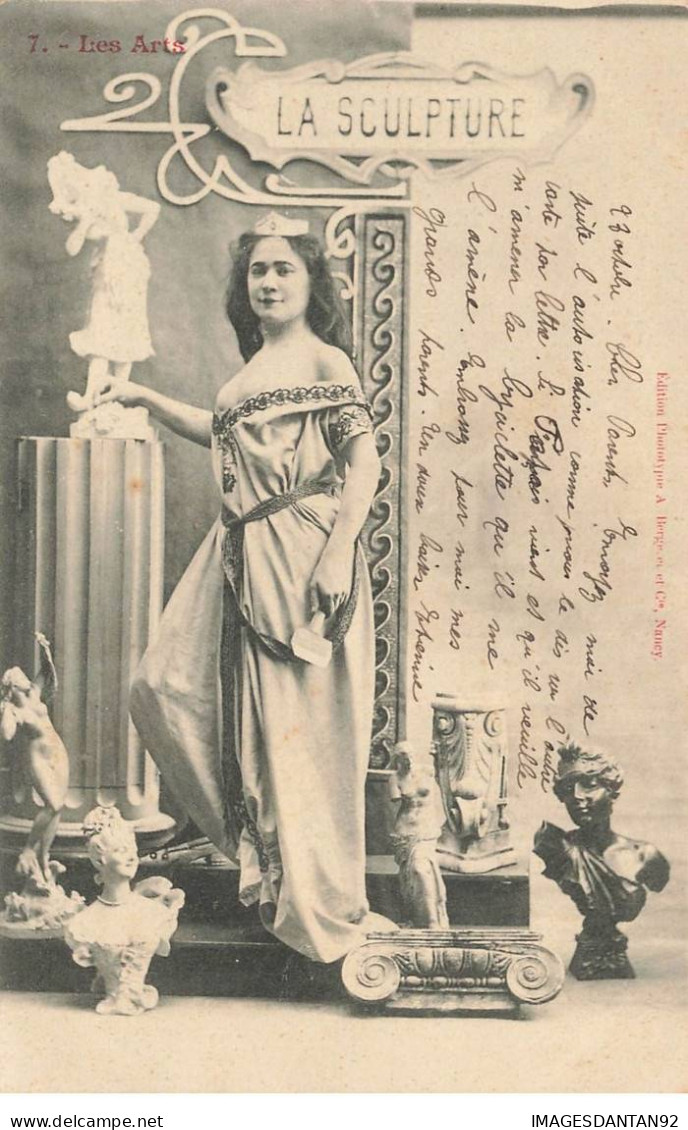 7. - Les Arts
LA SCULPTURE
23 octobre. Cher Parents, Envoyez moi de
suite l'autorisation comme je vous le dis sur l'autre
carte ou lettre. Si François vient et qu'il veuille
m'amener la bicyclette qu'il me
l'amène. Embrassez pour moi mes
Grands parents. Un doux baiser Etienne
Edition Phototypie A. Bergeret et Cie, Nancy.
IMAGESDANTAN92